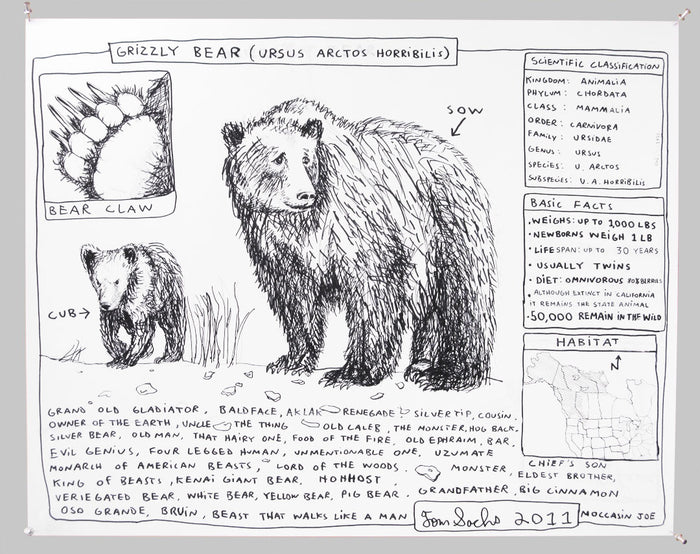 GRIZZLY BEAR (URSUS ARCTOS HORRIBILIS)
BEAR CLAW
SOW
CUB
SCIENTIFIC CLASSIFICATION
KINGDOM: ANIMALIA
PHYLUM: CHORDATA
CLASS: MAMMALIA
ORDER: CARNIVORA
FAMILY: URSIDAE
GENUS: URSUS
SPECIES: U. ARCTOS
SUBSPECIES: U.A. HORRIBILIS
BASIC FACTS
•WEIGHS: UP TO 1,000 LBS
•NEWBORNS WEIGH 1 LB
•LIFESPAN: UP TO 30 YEARS
• USUALLY TWINS
• DIET: OMNIVOROUS
• ALTHOUGH EXTINCT IN CALIFORNIA
IT REMAINS THE STATE ANIMAL
•50,000 REMAIN IN THE WILD
HABITAT
N
GRAND OLD GLADIATOR, BALDFACE, AKLAK RENEGADE, SILVERTIP, COUSIN,
OWNER OF THE EARTH, UNCLE, THE THING OLD CALEB, THE MONSTER, HOG BACK,
SILVER BEAR, OLD MAN, THAT HAIRY ONE, FOOD OF THE FIRE, OLD EPHRAIM, BAR,
EVIL GENIUS, FOUR LEGGED HUMAN, UNMENTIONABLE ONE, UZUMATE
MONARCH OF AMERICAN BEASTS, LORD OF THE WOODS. MONSTER, CHIEF'S SON
KING OF BEASTS, KENAI GIANT BEAR, HOHHOST, ELDEST BROTHER,
VERIEGATED BEAR, WHITE BEAR, YELLOW BEAR, PIG BEAR. GRANDFATHER, BIG CINNAMON
OSO GRANDE, BRUIN, BEAST THAT WALKS LIKE A MAN Tom Sachs 2011 MOCCASIN JOE